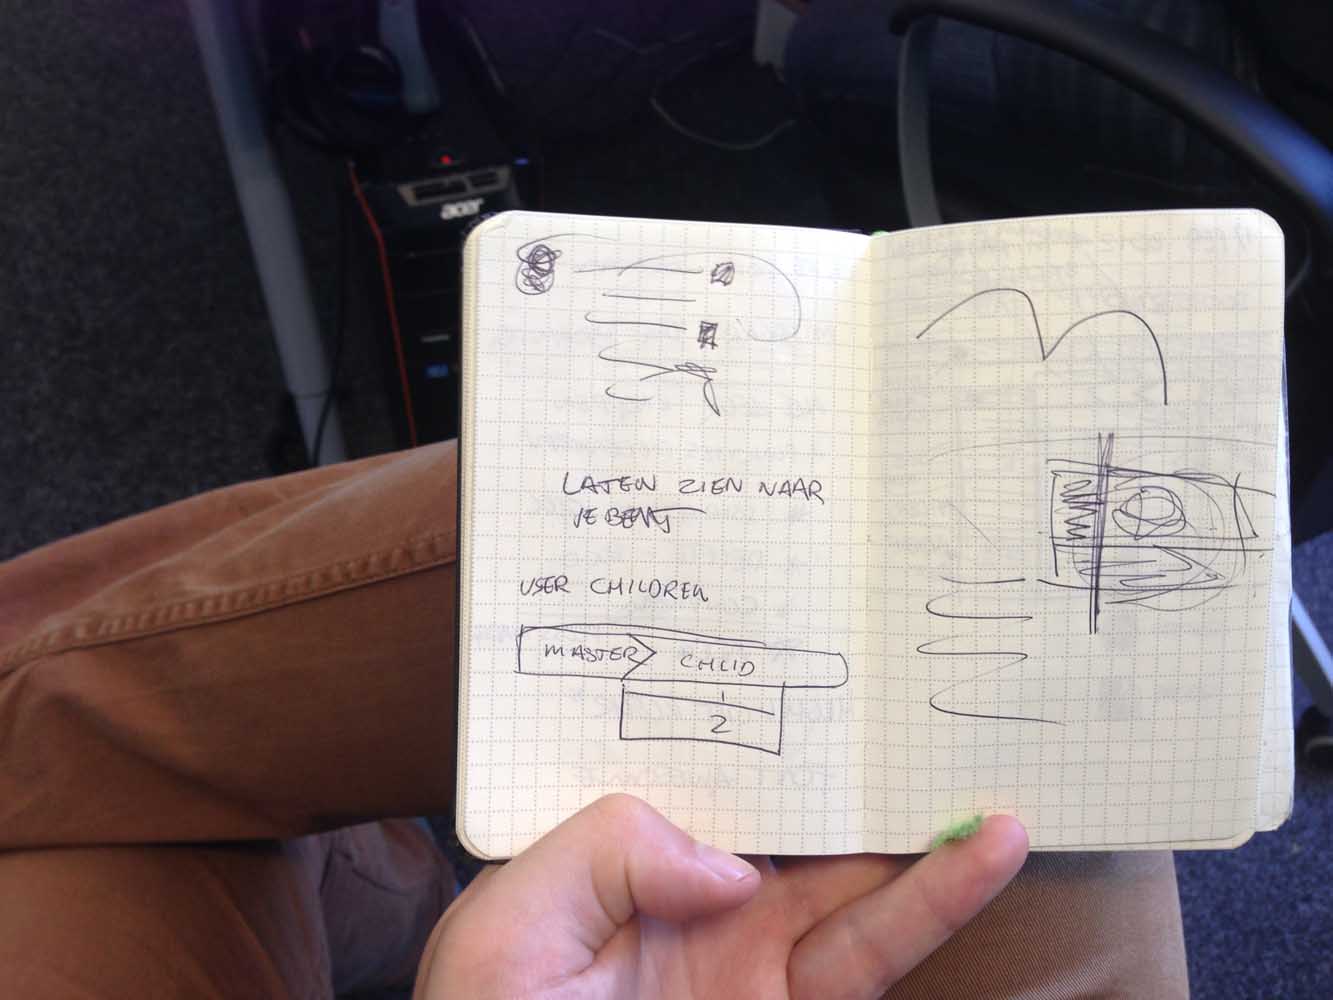 acer
LATEN ZIEN NAAR
JE BENT
USER CHILDREN
MASTER CHLID
1
2